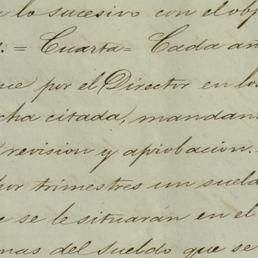 a lo sucesivo con el obj
: = Cuarta = Cada añ
ce por el Director en lo
cha citada, mandan
revision y aprobacion.
por trimestres un sueld
e se le situarán en el
mas del sueldo que se